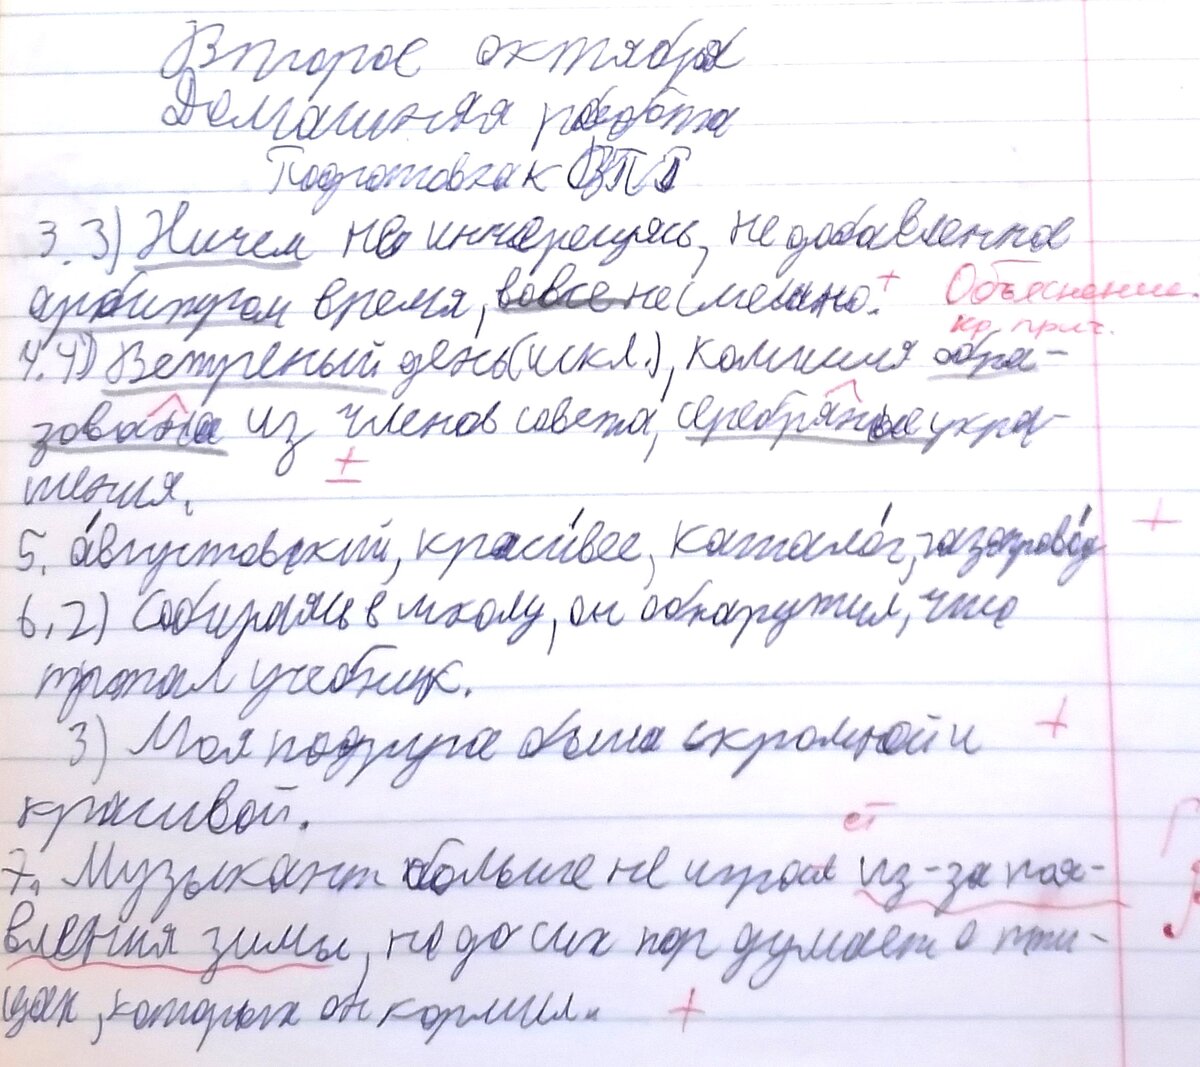 Второе октября
Домашняя работа
Подготовка к ВПР
3. 3) Ничем не интересуясь, не добавленное
арбитром время, вовсе не смешно. +
Объяснение.
кр. прич.
4. 4) Ветреный день (искл.), комиссия обра-
зована из членов совета, серебряные укра-
шения. ±
5. а́вгустовский, краси́вее, катало́г, газопрово́д +
6. 2) Собираясь в школу, он обнаружил, что
потерял учебник.
3) Моя подруга была скромной и +
красивой.
ет
7. Музыкант больше не играл из-за поя-
вления зимы, но до сих пор думает о пти-
цах, которых он кормил. +